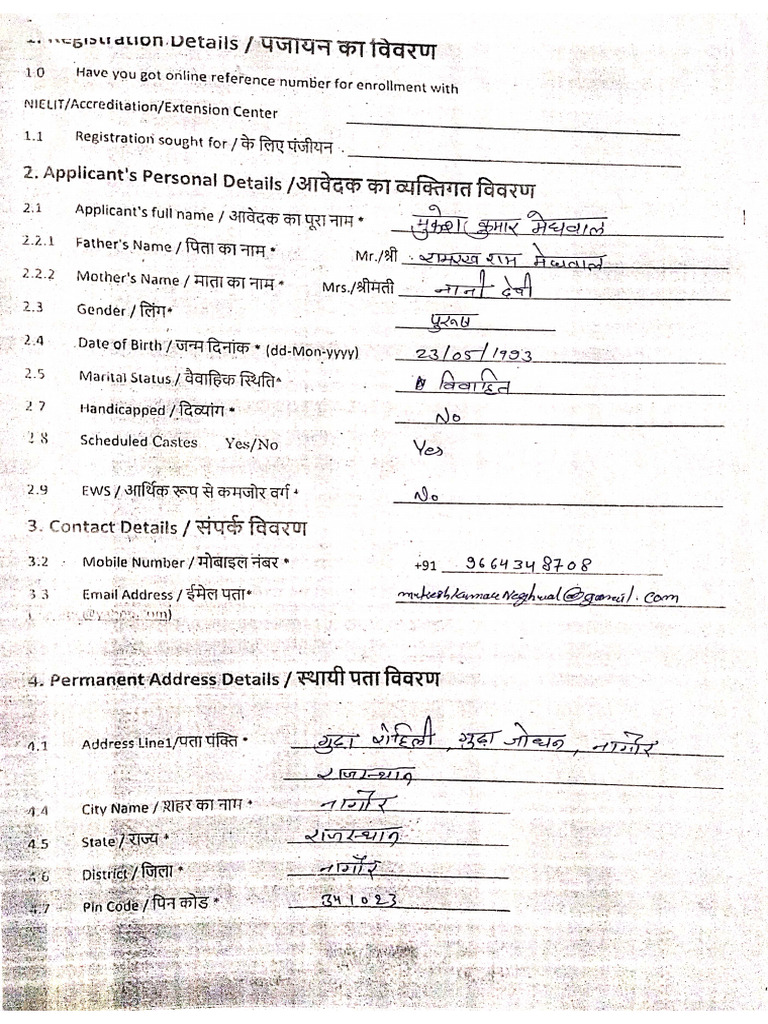 1. Registration Details / पंजीयन का विवरण
1.0 Have you got online reference number for enrollment with
NIELIT/Accreditation/Extension Center
1.1 Registration sought for / के लिए पंजीयन
2. Applicant's Personal Details /आवेदक का व्यक्तिगत विवरण
2.1 Applicant's full name / आवेदक का पूरा नाम * मुकेश कुमार मेघवाल
2.2.1 Father's Name / पिता का नाम * Mr./श्री रामरख राम मेघवाल
2.2.2 Mother's Name / माता का नाम * Mrs./श्रीमती नानी देवी
2.3 Gender / लिंग* पुरूष
2.4 Date of Birth / जन्म दिनांक * (dd-Mon-yyyy) 23/05/1993
2.5 Marital Status / वैवाहिक स्थिति* विवाहित
2.7 Handicapped / दिव्यांग * No
2.8 Scheduled Castes Yes/No Yes
2.9 EWS / आर्थिक रूप से कमजोर वर्ग * No
3. Contact Details / संपर्क विवरण
3.2 Mobile Number / मोबाइल नंबर * +91 9664348708
3.3 Email Address / ईमेल पता* @gmail.com
4. Permanent Address Details / स्थायी पता विवरण
4.1 Address Line1/पता पंक्ति * गुढ़ा रोहिली, गुढ़ा जोधन, नागौर
राजस्थान
4.4 City Name / शहर का नाम * नागौर
4.5 State / राज्य * राजस्थान
4.6 District / जिला * नागौर
4.7 Pin Code / पिन कोड * 341023